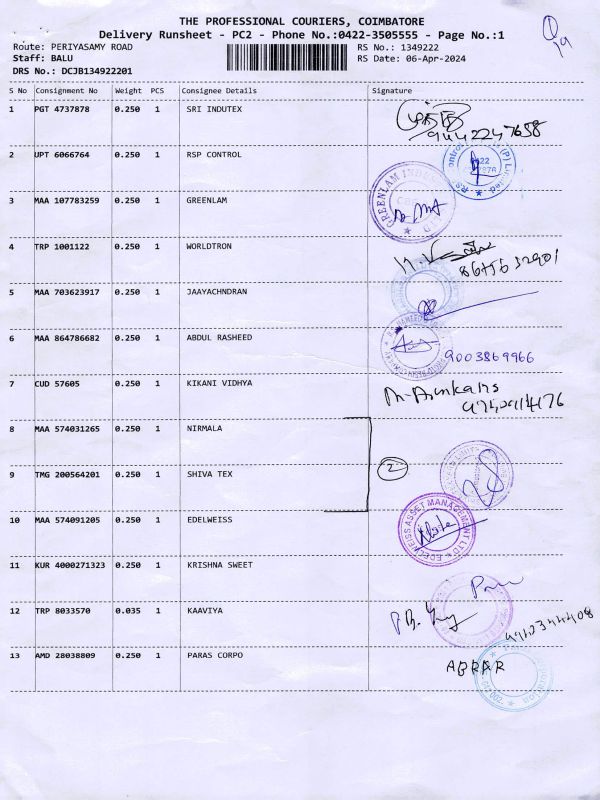 THE PROFESSIONAL COURIERS, COIMBATORE
Delivery Runsheet - PC2 - Phone No.:0422-3505555 - Page No.:1
Route: PERIYASAMY ROAD RS No.: 1349222
Staff: BALU RS Date: 06-Apr-2024
DRS No.: DCJB134922201
S No Consignment No Weight PCS Consignee Details Signature
1 PGT 4737878 0.250 1 SRI INDUTEX
9442247658
2 UPT 6066764 0.250 1 RSP CONTROL
3 MAA 107783259 0.250 1 GREENLAM
4 TRP 1001122 0.250 1 WORLDTRON
5 MAA 703623917 0.250 1 JAAYACHNDRAN
6 MAA 864786682 0.250 1 ABDUL RASHEED
9003869966
7 CUD 57605 0.250 1 KIKANI VIDHYA
8 MAA 574031265 0.250 1 NIRMALA
9 TMG 200564201 0.250 1 SHIVA TEX 2
10 MAA 574091205 0.250 1 EDELWEISS
EDELWEISS ASSET MANAGEMENT LTD
11 KUR 4000271323 0.250 1 KRISHNA SWEET
12 TRP 8033570 0.035 1 KAAVIYA
13 AMD 28038809 0.250 1 PARAS CORPO
ABRAR